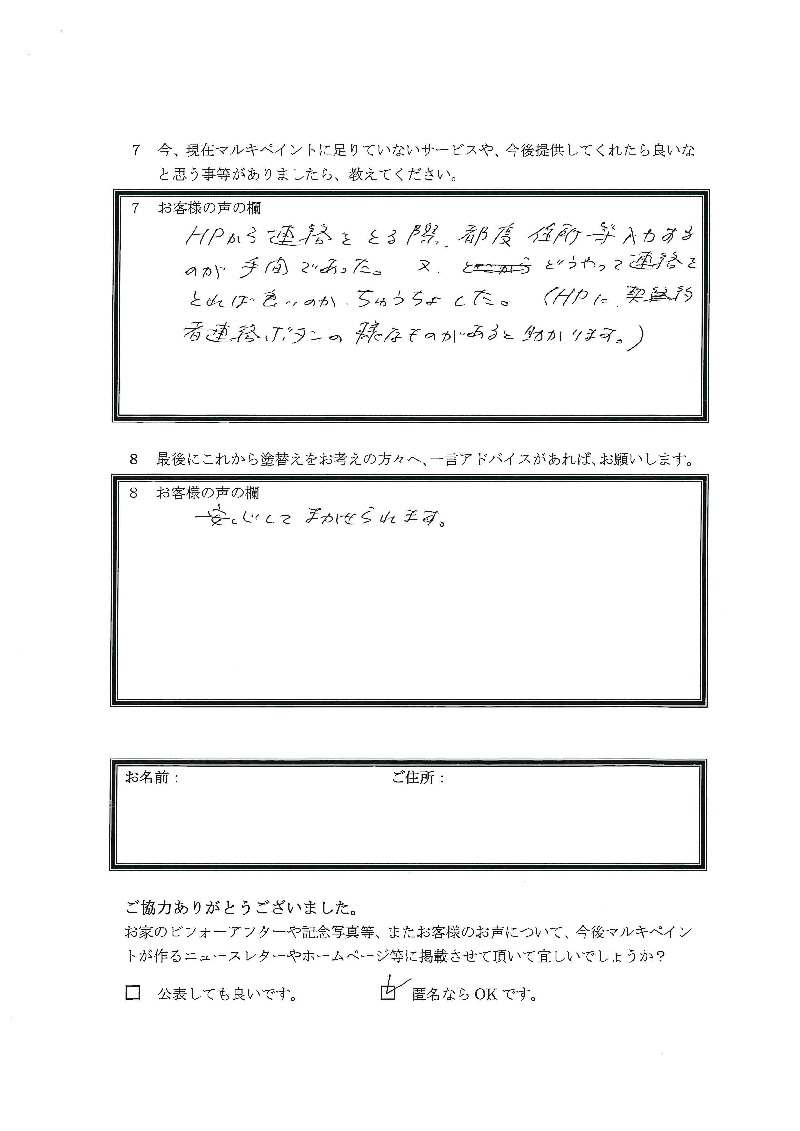 7 今、現在マルキペイントに足りていないサービスや、今後提供してくれたら良いな
と思う事等がありましたら、教えてください。
7 お客様の声の欄
HPから連絡をとる際、都度住所等入力する
のが手間であった。又、どうやって連絡を
とれば良いのか、ちゅうちょした。(HPに、契約
者連絡ボタンの様なものがあると助かります。)
8 最後にこれから塗替えをお考えの方々へ、一言アドバイスがあれば、お願いします。
8 お客様の声の欄
安心してまかせられます。
お名前: ご住所:
ご協力ありがとうございました。
お家のビフォーアフターや記念写真等、またお客様のお声について、今後マルキペイン
トが作るニュースレターやホームページ等に掲載させて頂いて宜しいでしょうか?
□ 公表しても良いです。 ☑ 匿名なら OK です。